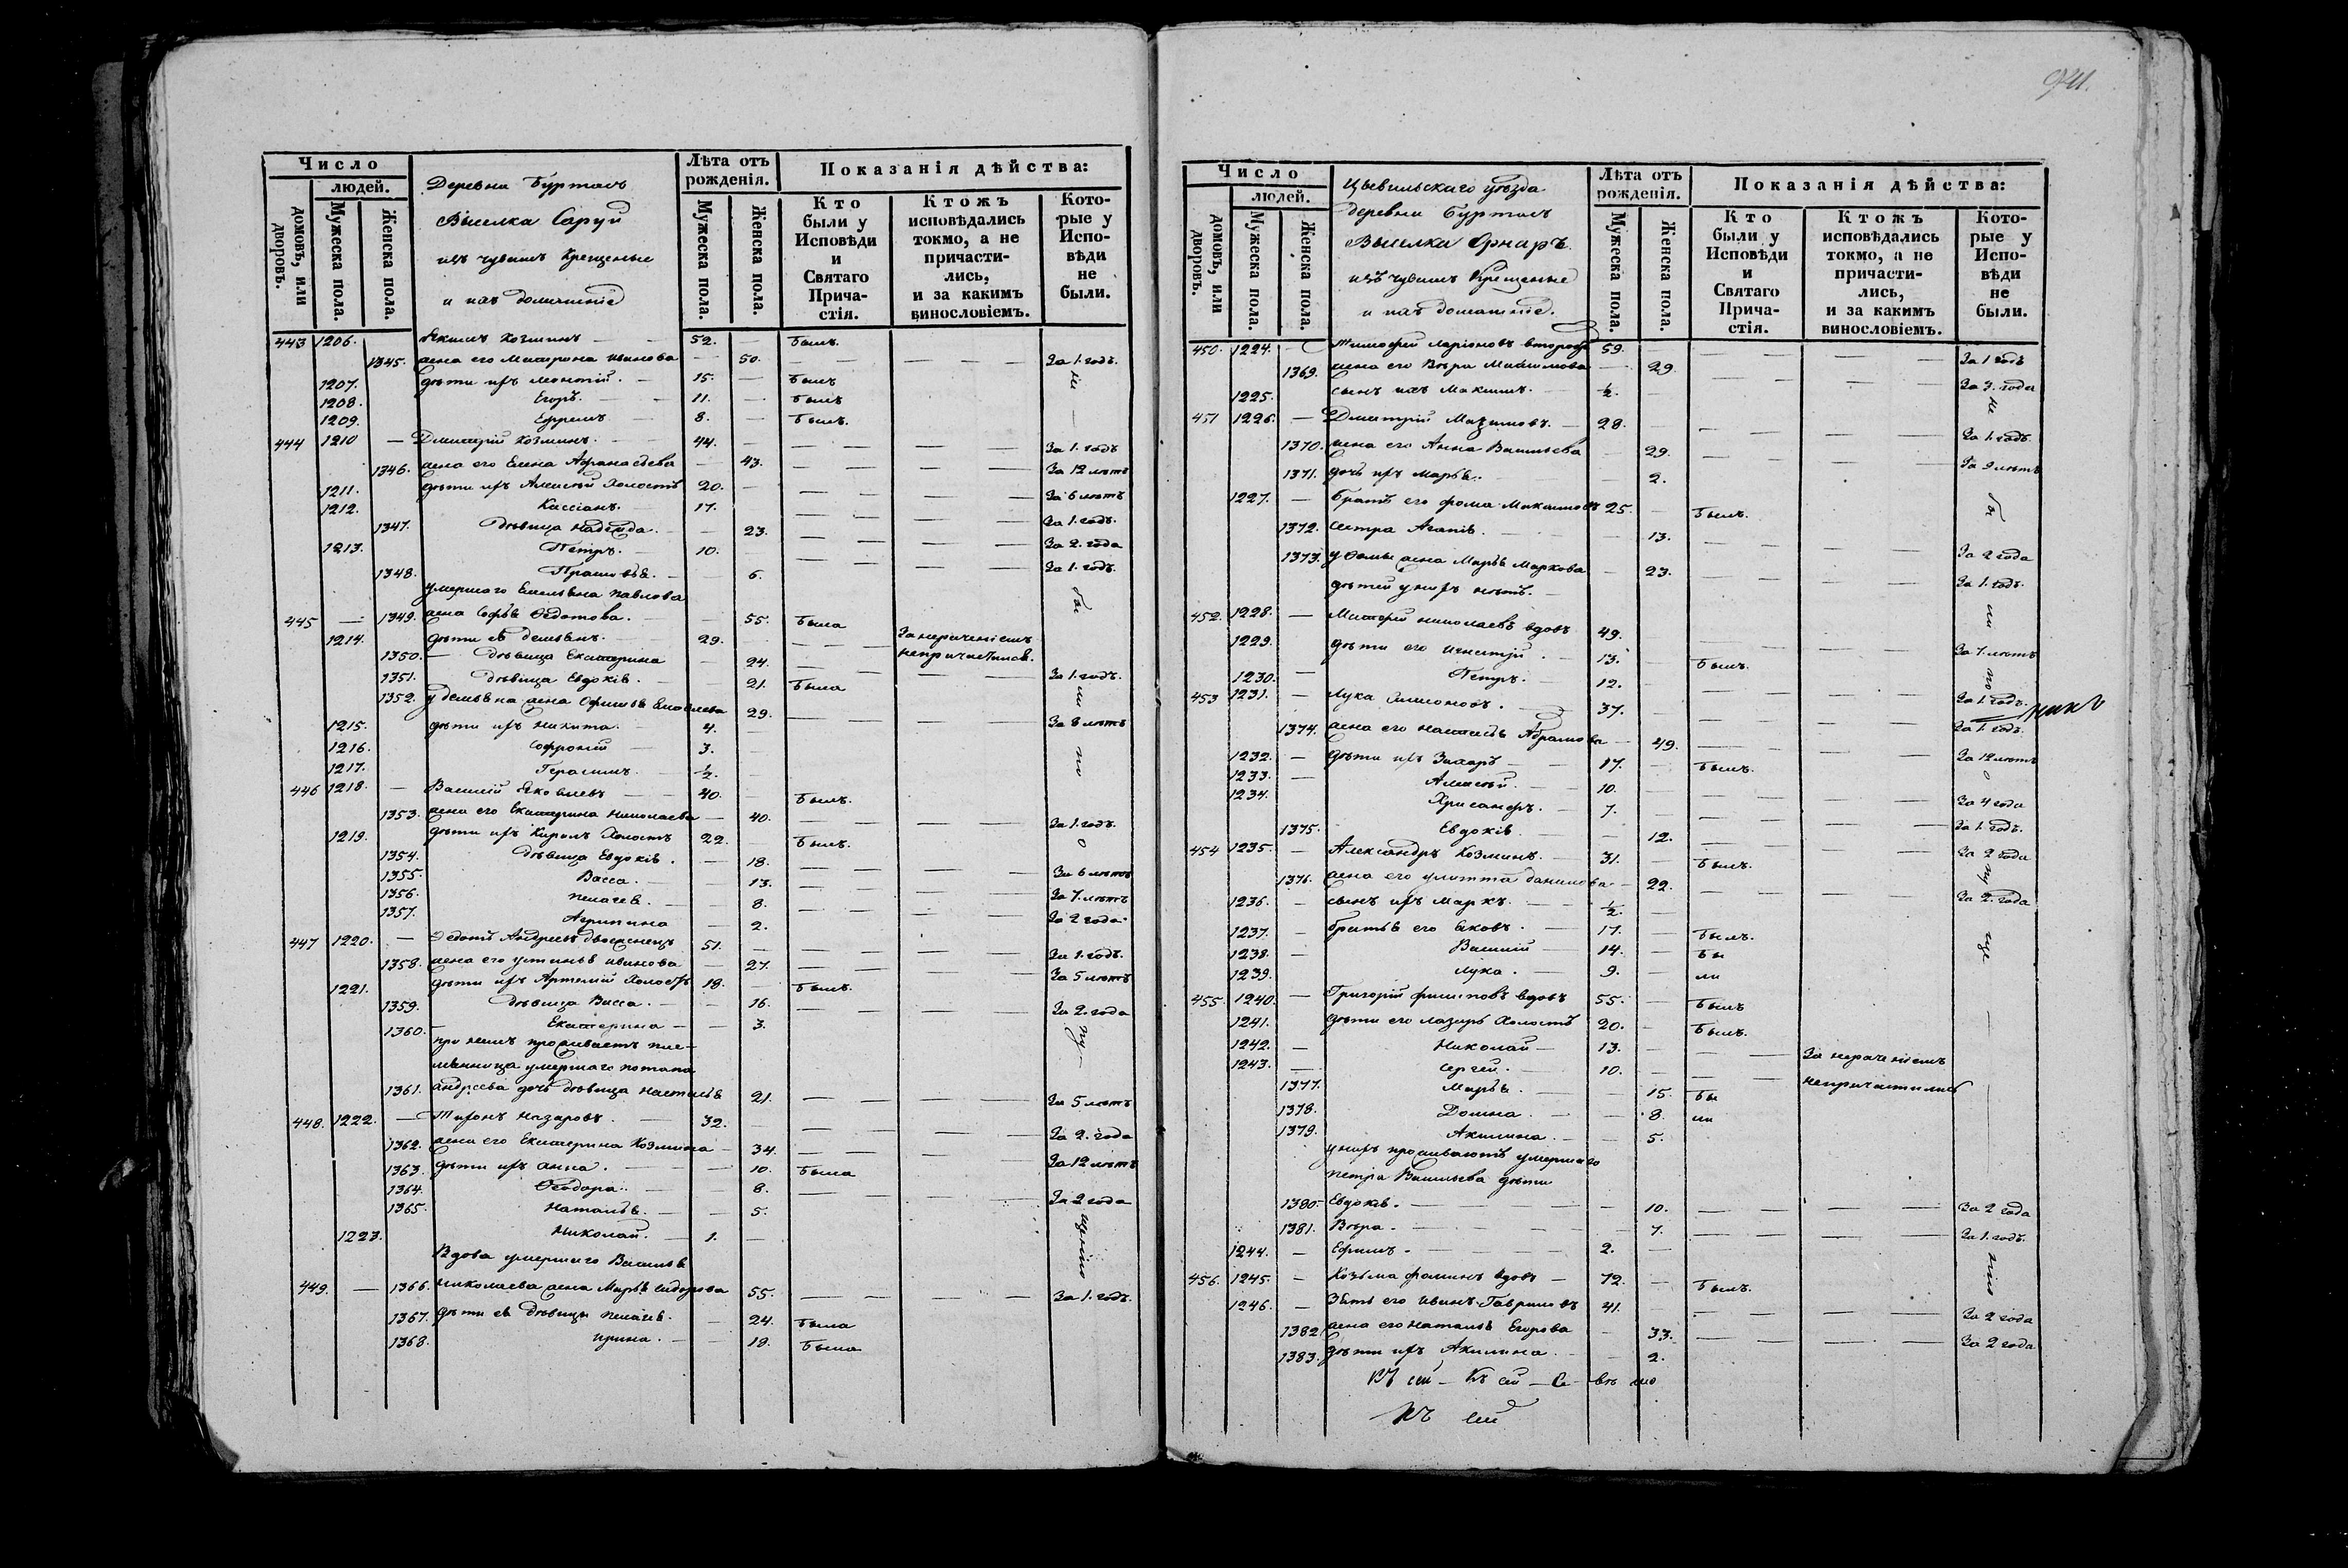 Число
людей.
домовъ, или дворовъ.
Мужеска пола.
Женска пола.
Деревни Буртасъ
Выселка Саруй
изъ чувашъ крещеные
и ихъ домашніе
Лѣта отъ рожденія.
Мужеска пола.
Женска пола.
Показанія дѣйства:
Кто были у Исповѣди и Святаго Причастія.
Ктожъ исповѣдались токмо, а не причастились, и за какимъ винословіемъ.
Которые у Исповѣди не были.
443 1206. Якимъ Козминъ 52. Былъ.
1345. жена его Матрона Иванова 50. За 1. годъ.
1207. дѣти ихъ Леонтій. 15. Былъ
1208. Егоръ. 11. Былъ
1209. Ефремъ 8. Былъ.
444 1210 Дмитрій Козминъ. 44. За 1. годъ
1346. жена его Елена Афанасьева 43. За 12 лѣтъ
1211. дѣти ихъ Алексѣй холостъ 20. За 6 лѣтъ
1212. Кассіанъ. 17. За 1. годъ.
1347. дѣвица Надежда. 23. За 2. года
1213. Петръ. 10. За 1. годъ.
1348. Прасковья. 6.
умершаго Емельяна Павлова
445 1349. жена Софья Ѳедотова. 55. Была
1214. дѣти её Демьянъ. 29. За нераченіемъ
1350. дѣвица Екатерина 24. непричастился.
1351. дѣвица Евдокія. 21. Была За 1. годъ.
1352. у Демьяна жена Офимья Яковлева 29. За 8 лѣтъ
1215. дѣти ихъ Никита. 4.
1216. Софроній 3.
1217. Герасимъ. ½.
446 1218. Василій Яковлевъ 40. Былъ.
1353. жена его Екатерина Николаева 40. За 1. годъ.
1219. дѣти ихъ Кирилъ холостъ 22. Былъ.
1354. дѣвица Евдокія. 18. За 6 лѣтъ
1355. Васса. 13. За 7. лѣтъ
1356. Пелагея. 8. За 2 года.
1357. Агрипина 2.
447 1220. Ѳедотъ Андреевъ двоеженецъ 51. За 1. годъ.
1358. жена его Устинья Иванова 27. За 5 лѣтъ
1221. дѣти ихъ Артемій холостъ 18. Былъ.
1359. дѣвица Васса. 16. За 2. года
1360. Екатерина 3.
при немъ проживаетъ пле-
мянница умершаго Потапа
1361. Андреева дочь дѣвица Настасья 21. За 5 лѣтъ
448. 1222. Тихонъ Назаровъ. 32. За 2. года
1362. жена его Екатерина Козмина 34. За 12 лѣтъ
1363. дѣти ихъ Анна. 10. Была
1364. Ѳеодора. 8. За 2 года
1365. Наталья. 5.
1223. Николай. 1.
Вдова умершаго Василья
449. 1366. Николаева жена Марья Сидорова 55. За 1. годъ.
1367. дѣти её дѣвицы Пелагея. 24. Была
1368. Ирина. 19. Была
941.
Число
людей.
домовъ, или дворовъ.
Мужеска пола.
Женска пола.
Цывильскаго уѣзда
деревни Буртасъ
Выселка Орнаръ
изъ чувашъ крещеные
и ихъ домашніе.
Лѣта отъ рожденія.
Мужеска пола.
Женска пола.
Показанія дѣйства:
Кто были у Исповѣди и Святаго Причастія.
Ктожъ исповѣдались токмо, а не причастились, и за какимъ винословіемъ.
Которые у Исповѣди не были.
450. 1224. Тимофей Ларіоновъ 59. За 1 годъ
1369. жена его Вѣра Максимова 29. За 3. года
1225. сынъ ихъ Максимъ. ½.
451 1226. Дмитрій Максимовъ. 28. За 1. годъ
1370. жена его Анна Васильева 29. За 9 лѣтъ
1371. дочь ихъ Марья. 2.
1227. братъ его Фома Максимовъ 25. Былъ.
1372. сестра Агапія. 13. За 2 года
1373. у Фомы жена Марья Маркова 23. За 1. годъ.
дѣтей у нихъ нѣтъ.
452. 1228. Матфей Николаевъ вдовъ 49. За 7. лѣтъ
1229. дѣти его Игнатій. 13. Былъ.
1230. Петръ. 12. За 1. годъ.
453 1231. Лука Симионовъ. 37. За 1. годъ.
1374. жена его Настасья Абрамова 49. За 12 лѣтъ
1232. дѣти ихъ Захаръ 17. Былъ.
1233. Алексѣй. 10. За 4 года
1234. Хрисанфъ. 7. За 1. годъ.
1375. Евдокія 12. За 2 года
454 1235. Александръ Козминъ. 31. Былъ.
1376. жена его Улитта Данилова 22. За 2. года
1236. сынъ ихъ Маркъ. ½.
1237. братья его Яковъ. 17. Былъ.
1238. Василій 14. Бы
1239. Лука. 9. ли
455. 1240. Григорій Филиповъ вдовъ 55. Былъ
1241. дѣти его Лазарь холостъ 20. Былъ.
1242. Николай 13. За нераченіемъ
1243. Сергей. 10. непричастились
1377. Марья. 15. Бы
1378. Домна. 8. ли
1379. Акилина. 5.
у нихъ проживаютъ умершаго
Петра Васильева дѣти
1380. Евдокія. 10. За 2 года
1381. Вѣра. 7. За 1. годъ.
1244. Ефимъ. 2.
456. 1245. Козьма Фоминъ вдовъ 72. Былъ.
1246. Зять его Иванъ Гавриловъ 41. За 2 года
1382. жена его Наталья Егорова 33. За 2 года
1383. дѣти ихъ Акилина. 2.